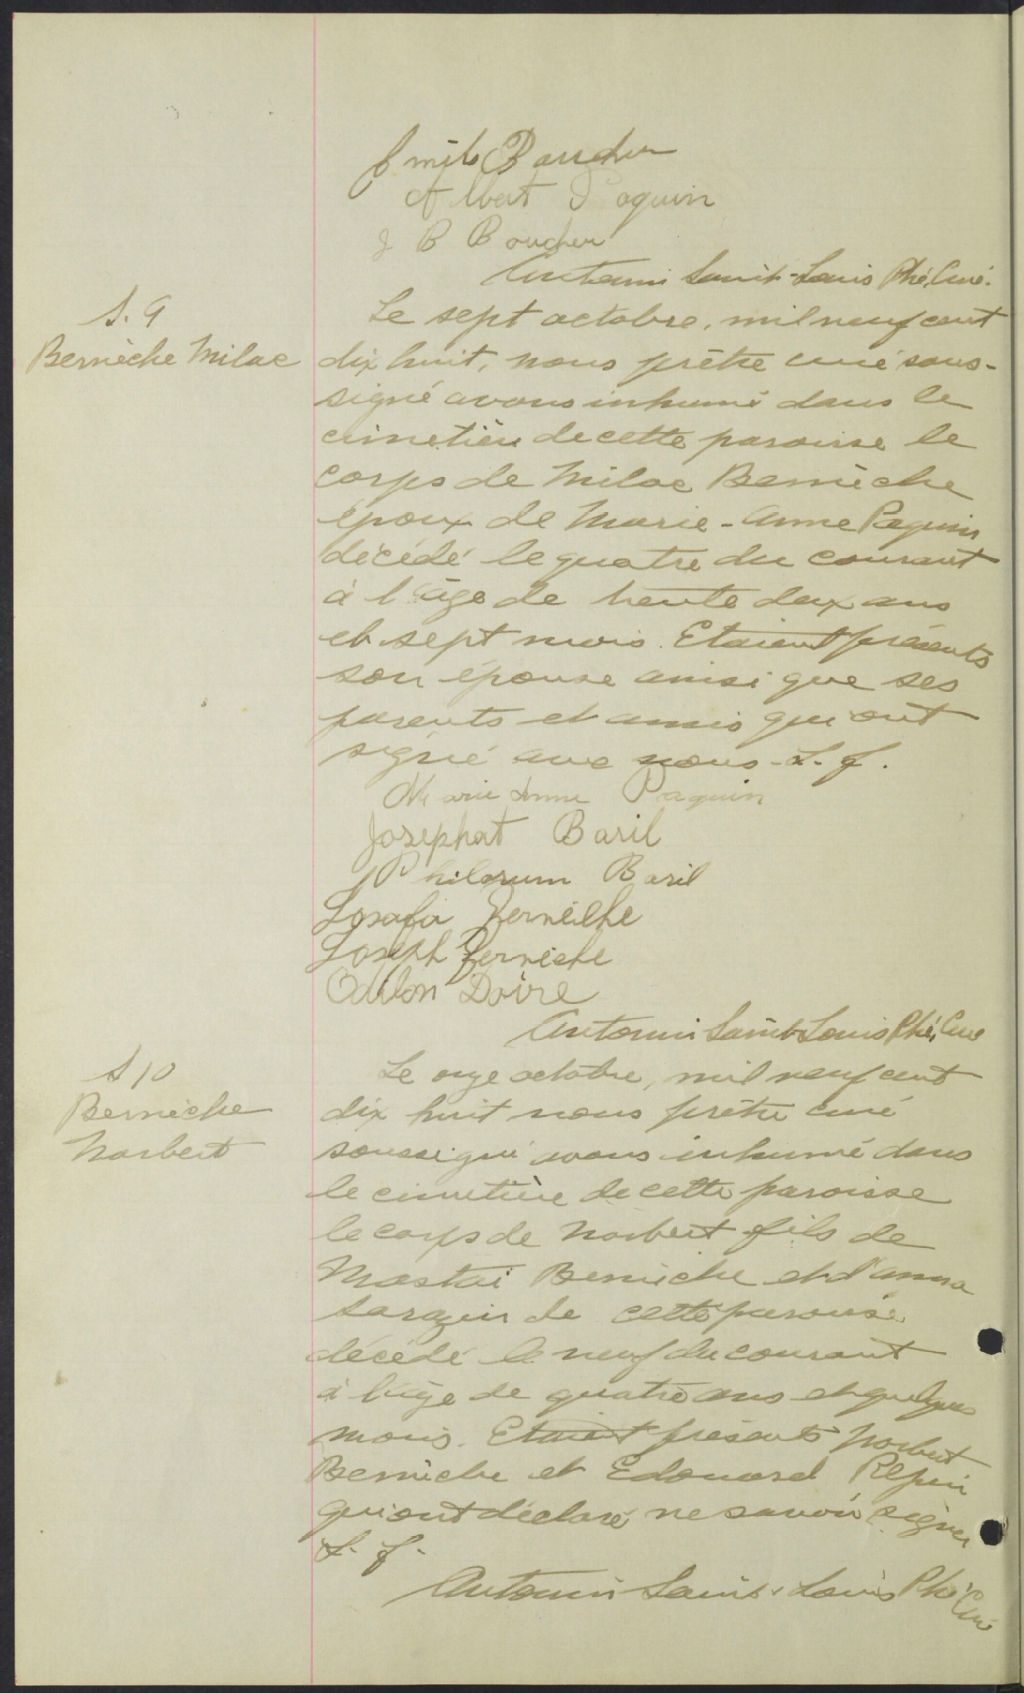 Emile Boucher
Albert Paquin
J B Boucher
Antonin Saint-Louis Ptre, Curé.
S. 9
Bernèche Milac
Le sept octobre, mil neuf cent
dix huit, nous prêtre curé sous-
signé avons inhumé dans le
cimetière de cette paroisse le
corps de Milac Bernèche
époux de Marie-Anne Paquin
décédé le quatre du courant
à l'âge de trente deux ans
et sept mois. Etaient présents
son épouse ainsi que ses
parents et amis qui ont
signé avec nous. L. f.
Marie Anne Paquin
Josephat Baril
Philorum Baril
Josafa Bernèche
Joseph Bernèche
Odilon Doire
Antonin Saint-Louis Ptre, Curé
S 10
Bernèche
Norbert
Le onze octobre, mil neuf cent
dix huit nous prêtre curé
soussigné avons inhumé dans
le cimetière de cette paroisse
le corps de Norbert fils de
Mastaï Bernèche et d'Anna
Sarazin de cette paroisse
décédé le neuf du courant
à l'âge de quatre ans et quelques
mois. Etaient présents Norbert
Bernèche et Edouard
qui ont déclaré ne savoir signer
L. f.
Antonin Saint-Louis Ptre Curé